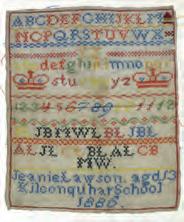 ABCDEFGHIJKLM
NOPQRSTUVWX
defghijklmnop
stu yz
123456789 1112
JB MWL BL JBL
AL JL BL AL CB
MW.
Jeanie Lawson. agd 13
Kilconquhar School
1886.